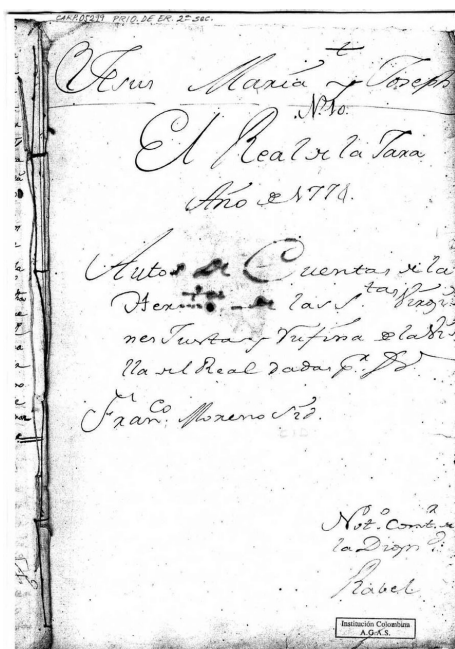 CARP. 05299 PRIO. DE ER. 2ª SEC.
t
Jesus Maria y Joseph
N. 10.
El Real de la Jara
Año de 1771.
Autos de Cuentas de la
Herm.ᵈ de las S.ᵗᵃˢ Virgi-
nes Justa y Rufina de la Vi-
lla del Real dadas p.ʳ Dⁿ
Fran.ᶜᵒ Moreno
Not.º
la
Rabel
Institución Colombina
A.G.A.S.